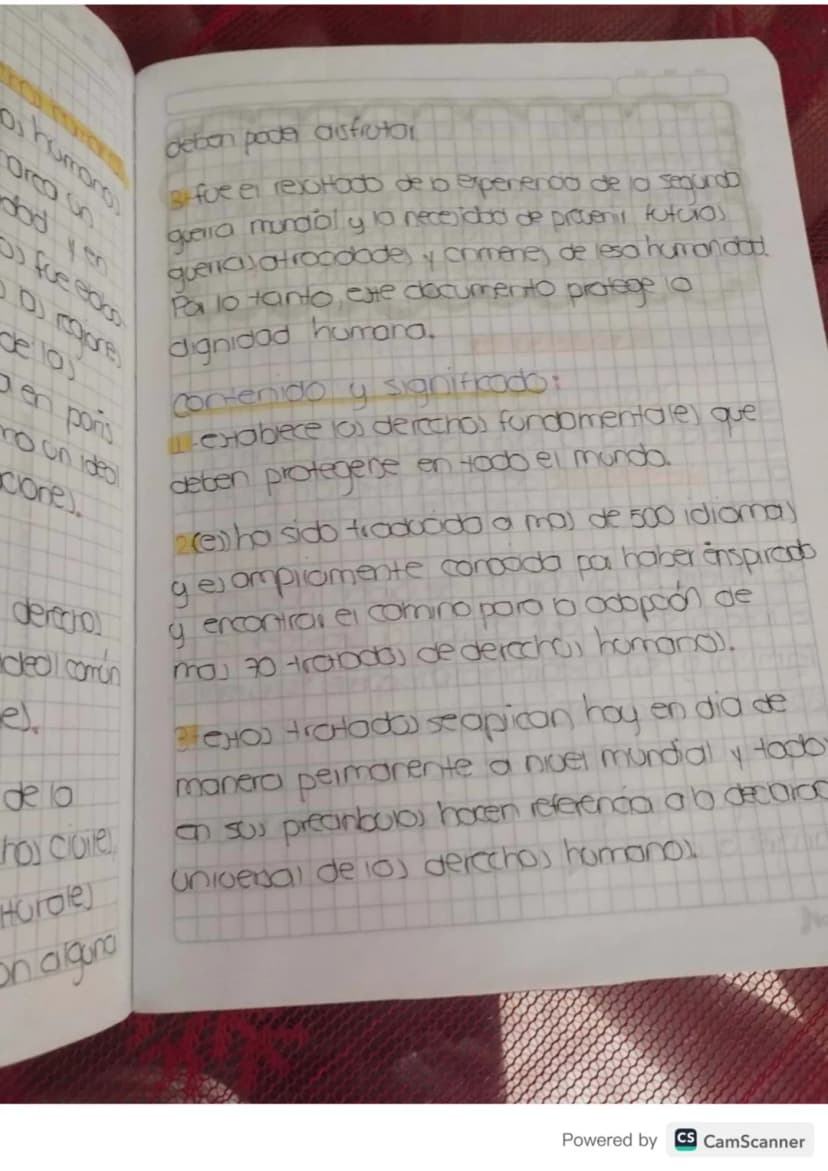 os humanos
marco un
dad y en
os fue edac
os regiones
de las
a en paris
mo un ideal
ciones.
derechos
ideal común
es.
de la
hos civiles
turales
on alguna
deben poder disfrutar
3-fue el resultado de la experencia de la segunda
guerra mundial y la necesidad de prevenir futuras
guerras, atrocidades y crimenes de lesa humanidad.
Por lo tanto, este documento protege la
dignidad humana.
contenido y significado:
1-establece los derechos fundamentales que
deben protegerse en todo el mundo.
2(es) ha sido traducida a mas de 500 idiomas
y es ampliamente conocida por haber inspirado
y encontrar el camino para la adopción de
mas 70 tratados de derechos humanos.
3-estos tratados se apican hoy en dia de
manera permanente a nivel mundial y todo
en sus preambulos hacen referencia a la declarac
universal de los derechos humanos.
Powered by CS CamScanner